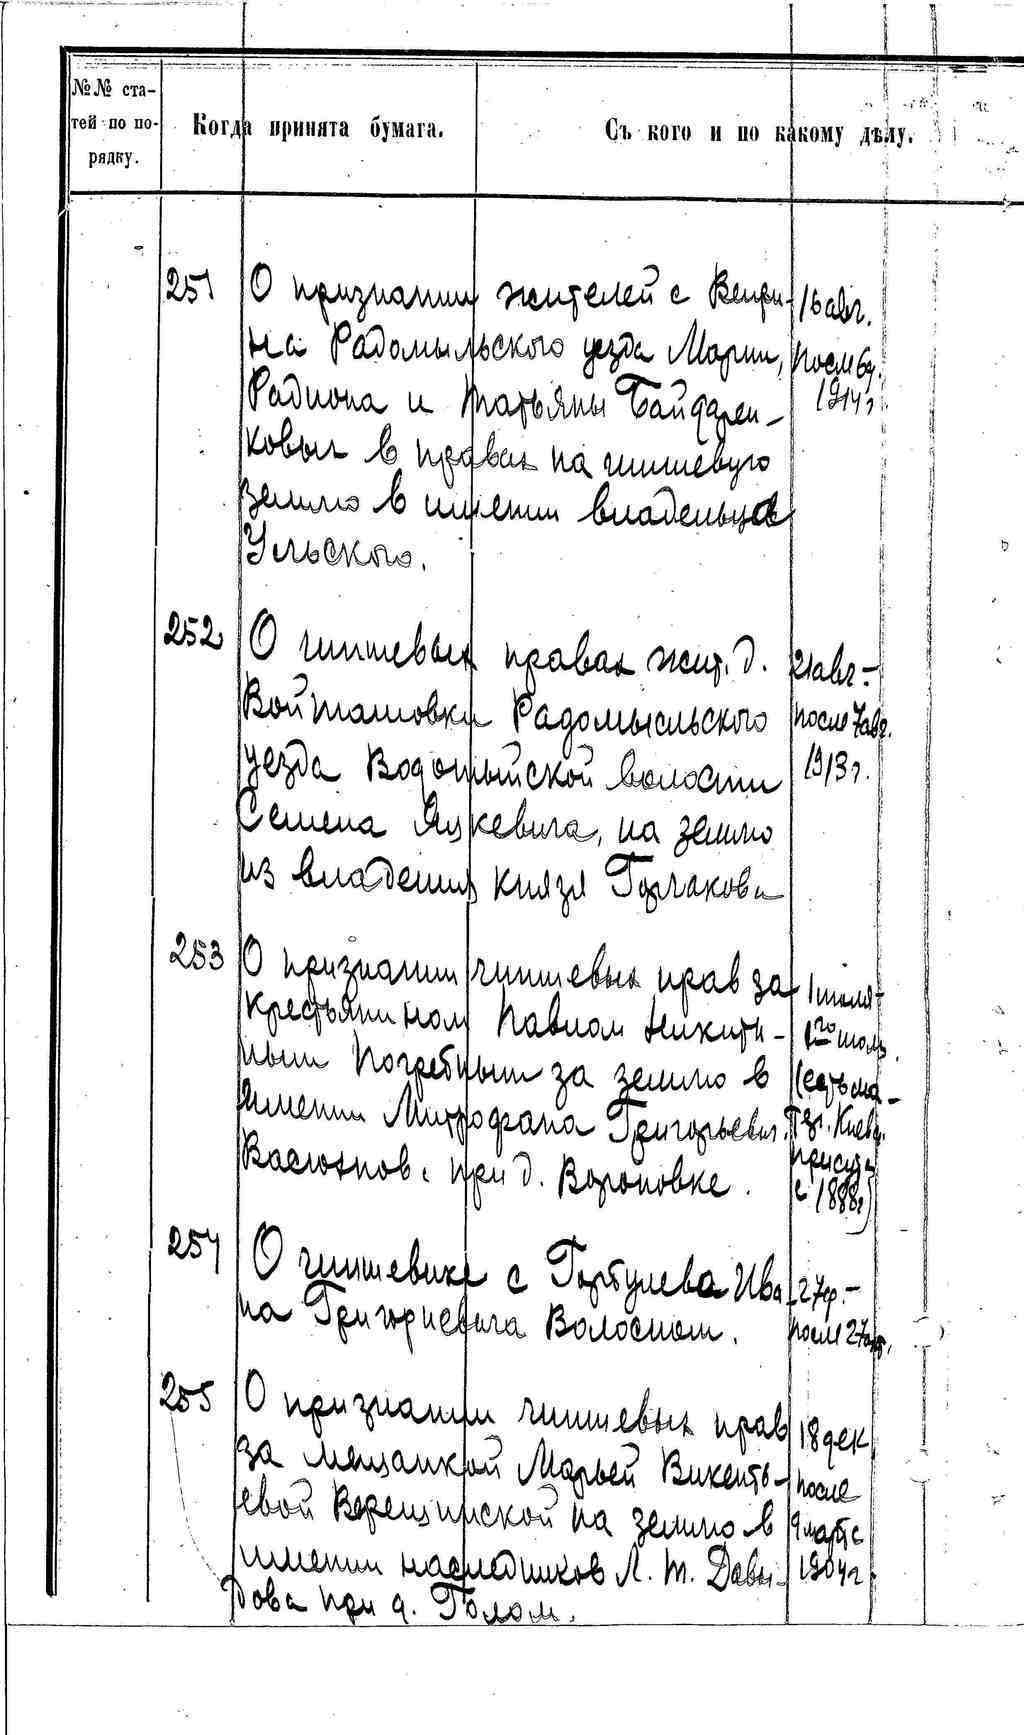 №№ ста-
тей по по-
рядку.
Когда принята бумага.
Съ кого и по какому дѣлу.
251
О признании жителей с Вепри-
на Радомыльского уезда Марии,
Радиона и Татьяны Байдрен-
ковых в правах на чиншевую
землю в имении владельца
Ульского.
16 авг.
после 6
1914 г.
252
О чиншевых правах жит. д.
Войташовки Радомысльского
уезда Водотыйской волости
Семена Яцкевича, на землю
из владения князя Горчакова
21 авг. –
после 7 авг.
1913 г.
253
О признании чиншевых прав за
крестьянином Павлом Никити-
ным Погребным за землю в
имении Митрофана Григорьевич.
при д. Вороновке.
1 июля –
1го июль
(есть ма-
т. Киевс.
присутс
с 1888 г)
254
О чиншевике с Горбулева Ива
на Григориевича Волосном.
27 ф. –
после 27
255
О признании чиншевых прав
за мещанкой Марьей Викенть-
евой Верещинской на землю в
имении наследников Л. Т. Давы-
дова при д. Голом.
18 дек.
после
9 марта
1904 г.